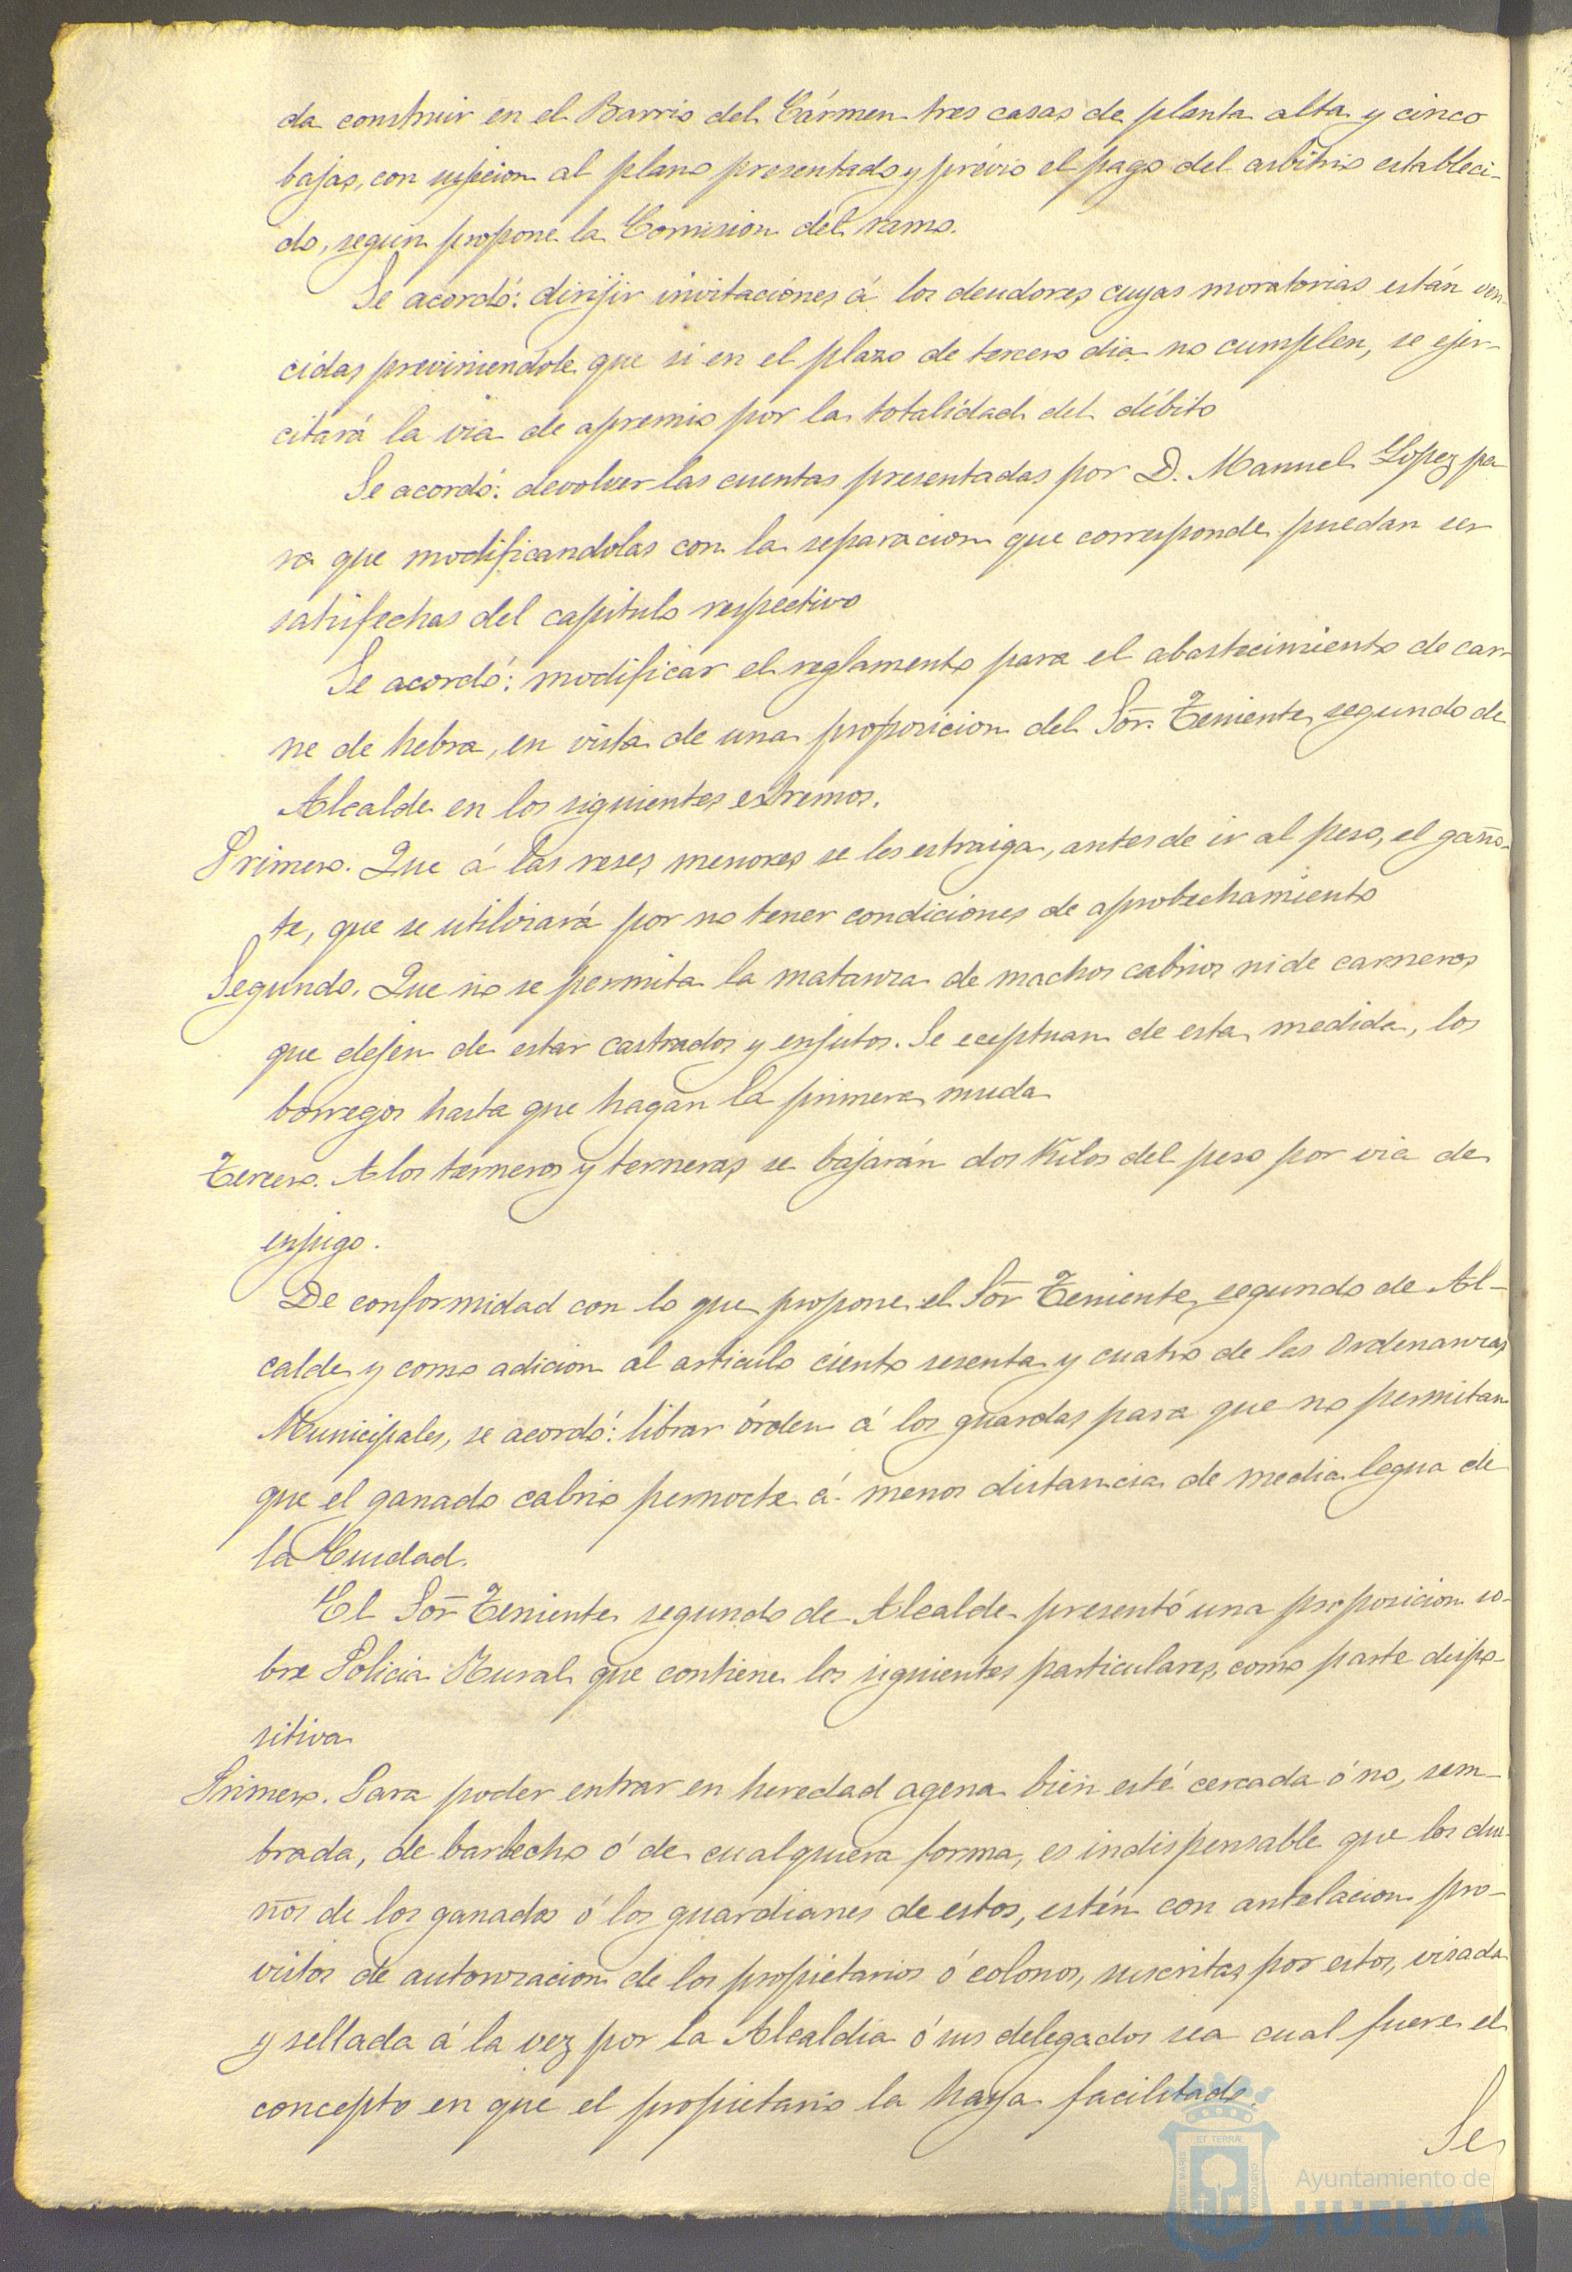 da construir en el Barrio del Cármen tres casas de planta alta y cinco
bajas, con sujecion al plano presentado y prévio el pago del arbitrio estableci-
do, segun propone la Comision del ramo.
Se acordó: dirijir invitaciones á los deudores cuyas moratorias están ven-
cidas previniendole que si en el plazo de tercero dia no cumplen, se ejer-
citará la via de apremio por la totalidad del débito
Se acordó: devolver las cuentas presentadas por D. Manuel Lopez pa-
ra que modificandolas con la separacion que corresponde puedan ser
satisfechas del capitulo respectivo
Se acordó: modificar el reglamento para el abastecimiento de car-
ne de hebra, en vista de una proposicion del Sor. Teniente segundo de
Alcalde en los siguientes extremos.
Primero. Que á las reses menores se les estraiga, antes de ir al peso, el gaño-
te, que se utilizará por no tener condiciones de aprobechamiento
Segundo. Que no se permita la matanza de machos cabrios ni de carneros
que dejen de estar castrados y enjutos. Se eceptuan de esta medida, los
borregos hasta que hagan la primera muda
Tercero. A los terneros y terneras se bajarán dos Kilos del peso por via de
enjugo.
De conformidad con lo que propone el Sor Teniente segundo de Al-
calde y como adicion al articulo ciento sesenta y cuatro de las Ordenanzas
Municipales, se acordó: librar órden á los guardas para que no permitan
que el ganado cabrio pernocte á menos distancia de media legua de
la Ciudad.
El Sor Teniente segundo de Alcalde presentó una proposicion so-
bre Policia Rural que contiene los siguientes particulares, como parte dispo-
sitiva
Primero. Para poder entrar en heredad agena bien esté cercada ó no, sem-
brada, de barbecho ó de cualquiera forma, es indispensable que los due-
ños de los ganados ó los guardianes de estos, estén con antelacion pro-
vistos de autorizacion de los propietarios ó colonos, suscritas por estos, visada
y sellada á la vez por la Alcaldia ó sus delegados sea cual fuere el
concepto en que el propietario la haya facilitado.
Se
ET TERRÆ
PORTUS MARIS
CUSTODIA
Ayuntamiento de
HUELVA